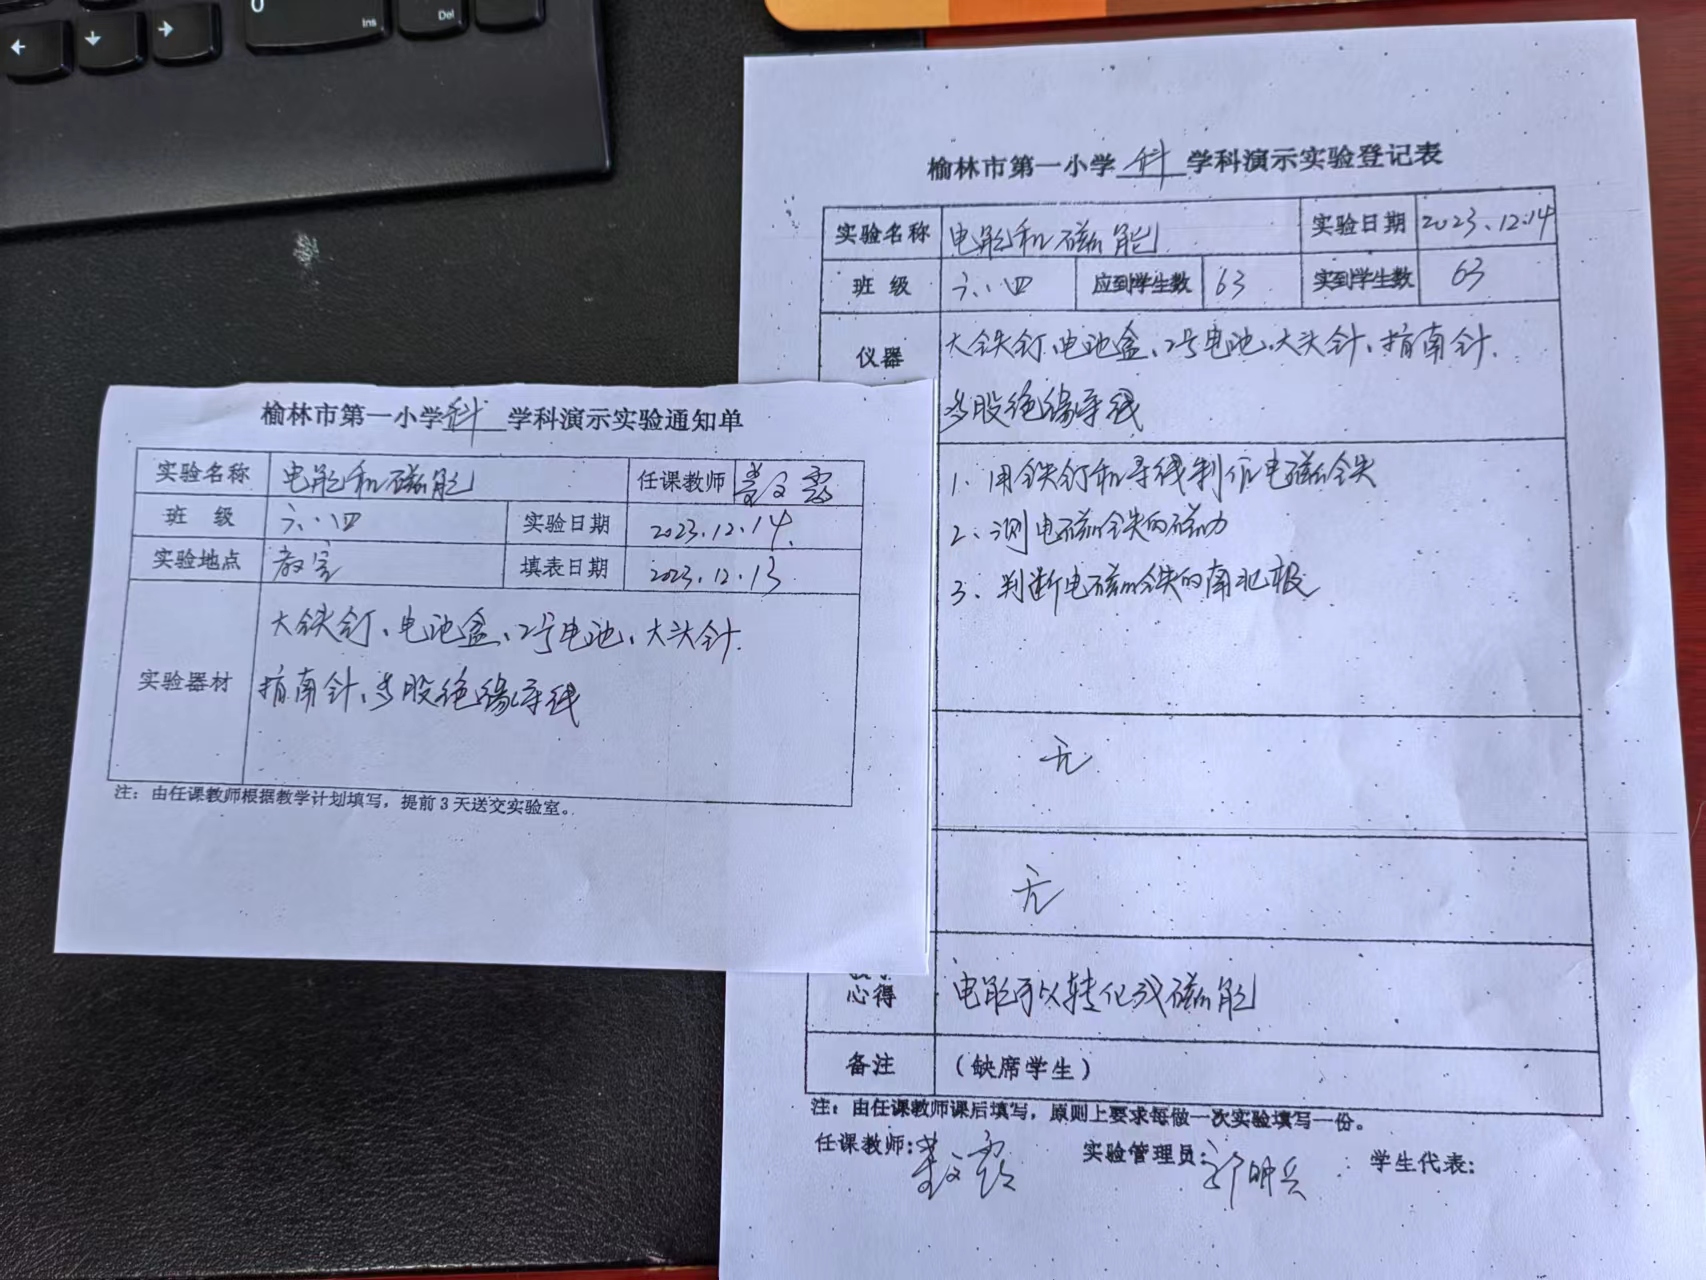 Ins
Del
榆林市第一小学 科 学科演示实验通知单
实验名称 电能和磁能 任课教师
班 级 六.四 实验日期 2023.12.14.
实验地点 教室 填表日期 2023.12.13.
实验器材 大铁钉、电池盒、2号电池、大头针.
指南针、多股绝缘导线
注：由任课教师根据教学计划填写，提前3天送交实验室。
榆林市第一小学 科 学科演示实验登记表
实验名称 电能和磁能 实验日期 2023.12.14
班 级 六.四 应到学生数 63 实到学生数 63
仪器 大铁钉、电池盒、2号电池、大头针、指南针.
多股绝缘导线
1、用铁钉和导线制作电磁铁
2、测电磁铁的磁力
3、判断电磁铁的南北极
无
无
心得 电能可以转化成磁能
备注 （缺席学生）
注：由任课教师课后填写，原则上要求每做一次实验填写一份。
任课教师: 实验管理员: 学生代表: